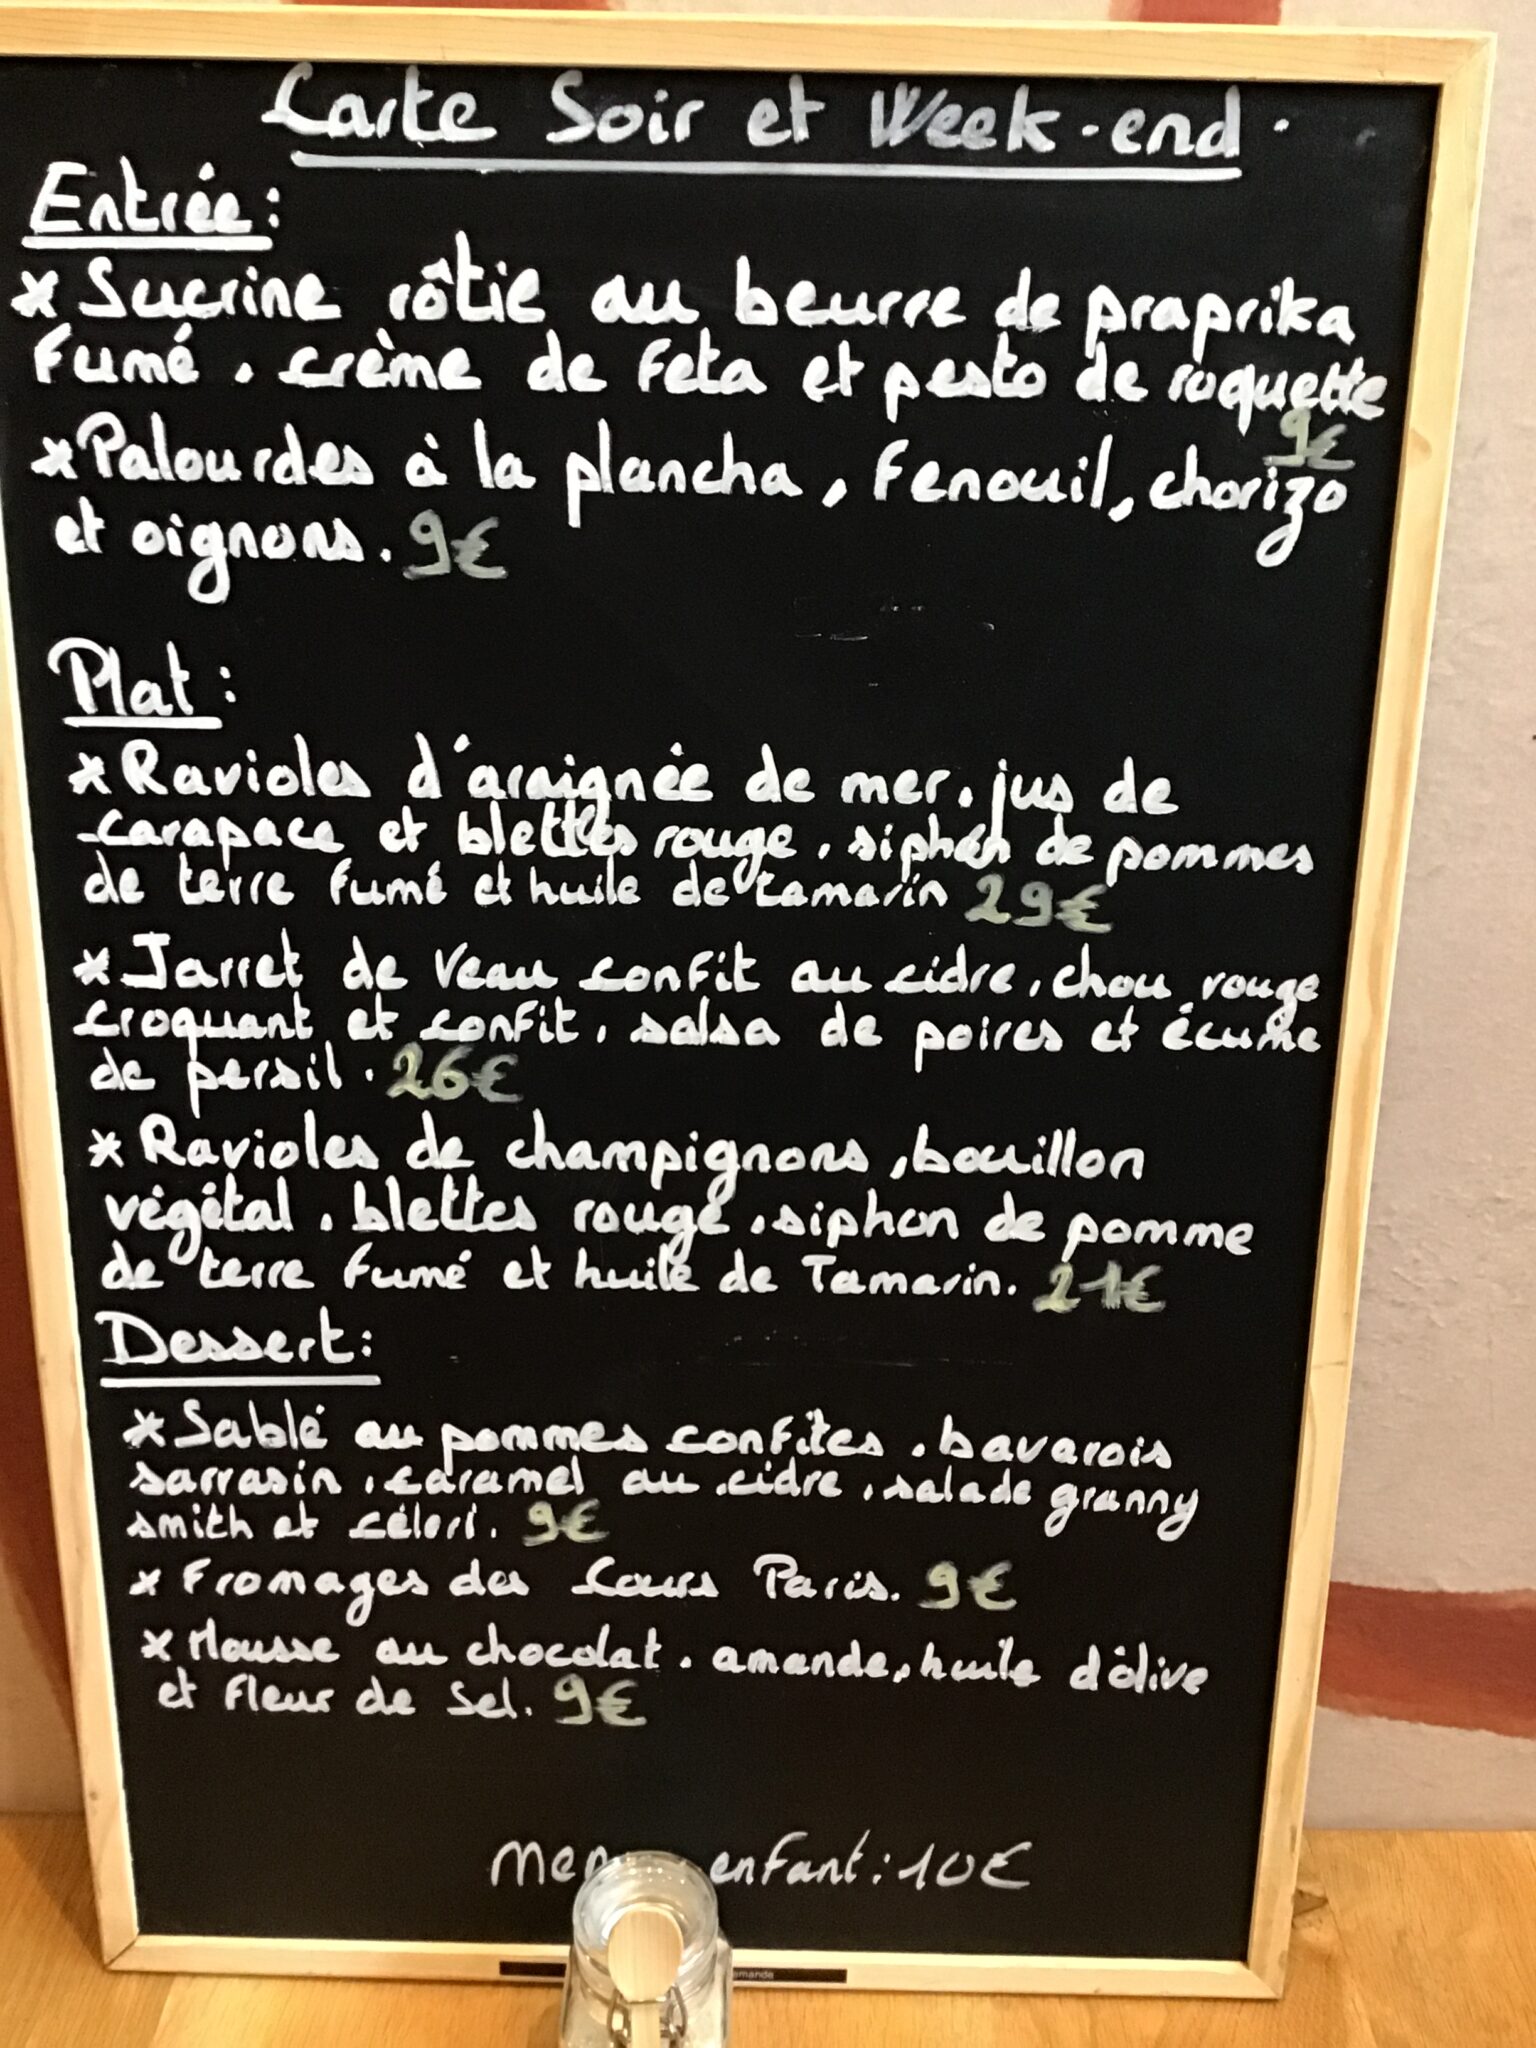 Carte Soir et Week-end.
Entrée:
* Sucrine rôtie au beurre de praprika
fumé, crème de feta et pesto de roquette
9€
* Palourdes à la plancha, fenouil, chorizo
et oignons. 9€
Plat:
* Ravioles d'araignée de mer, jus de
carapace et blettes rouge, siphon de pommes
de terre fumé et huile de tamarin 29€
* Jarret de veau confit au cidre, chou rouge
croquant et confit, salsa de poires et écume
de persil. 26€
* Ravioles de champignons, bouillon
végétal, blettes rouge, siphon de pomme
de terre fumé et huile de Tamarin. 21€
Dessert:
* Sablé au pommes confites, bavarois
sarrasin, caramel au cidre, salade granny
smith et céleri. 9€
* Fromages des Cours Paris. 9€
* Mousse au chocolat, amande, huile d'olive
et fleur de sel. 9€
enfant: 10€